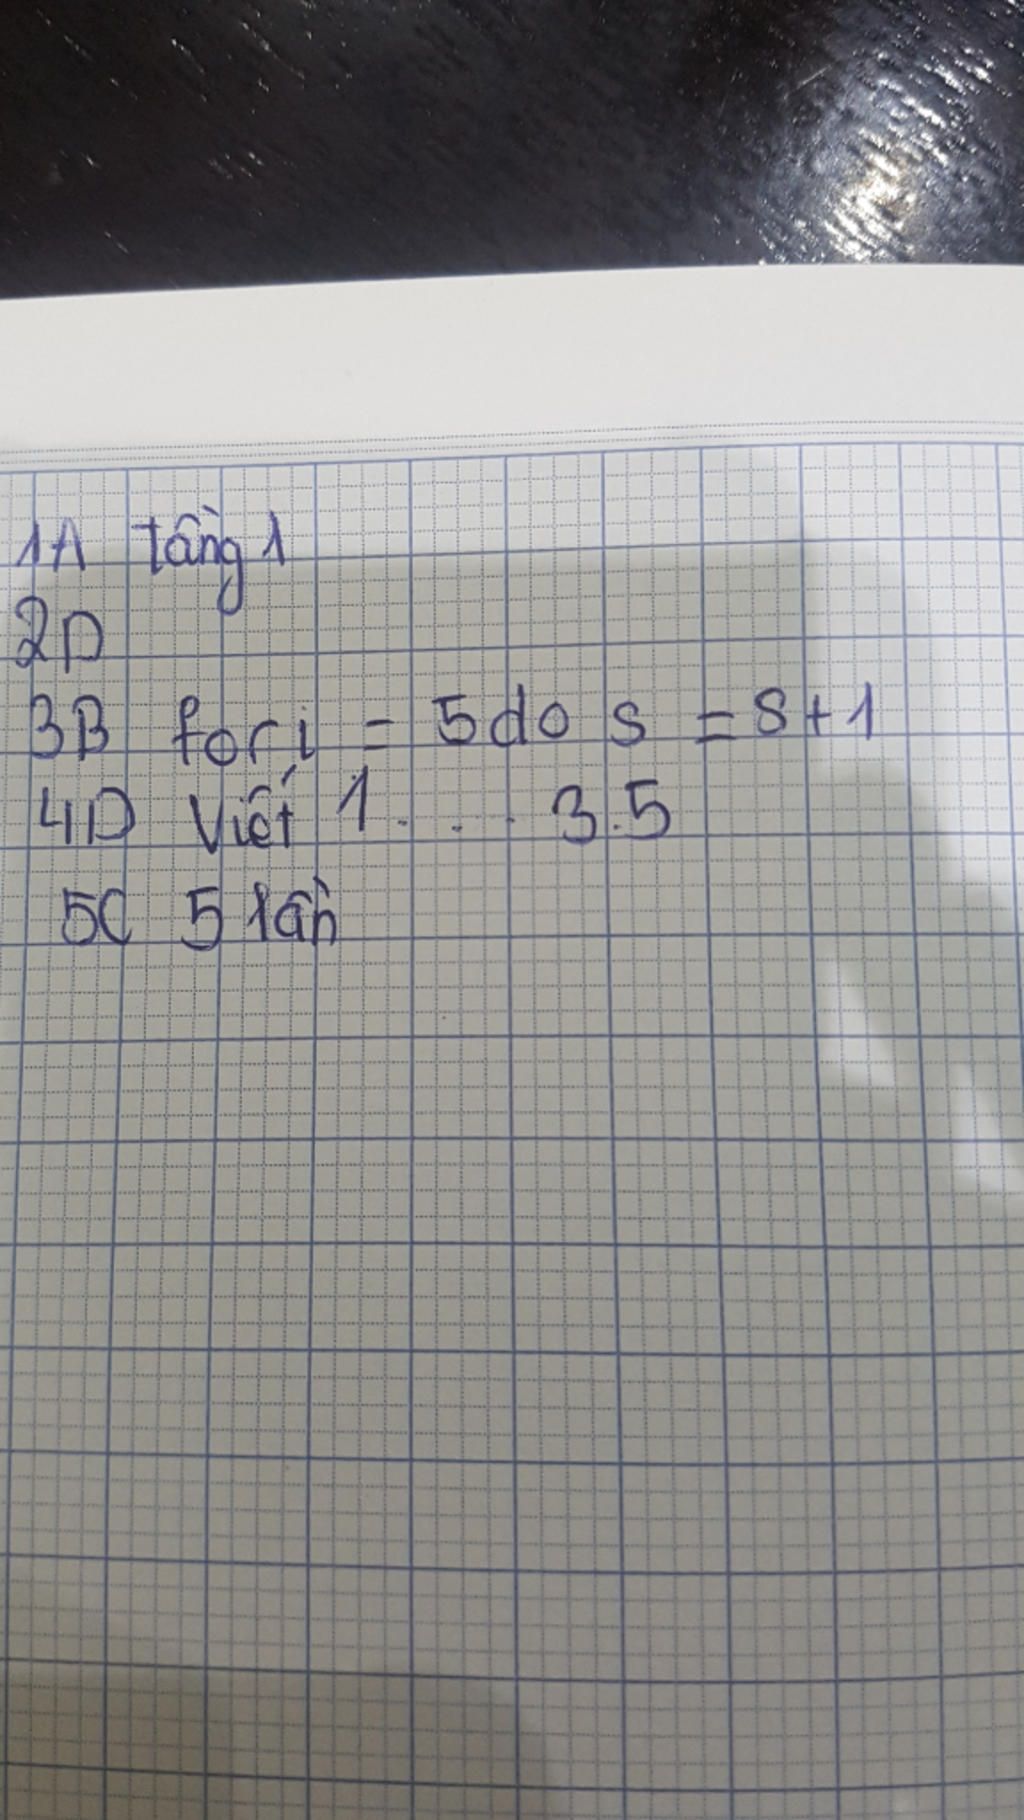 1A tầng 1
2D
3B for i = 5 do s = s + 1
4D Viết 1 . . . . 3.5
5C 5 lần